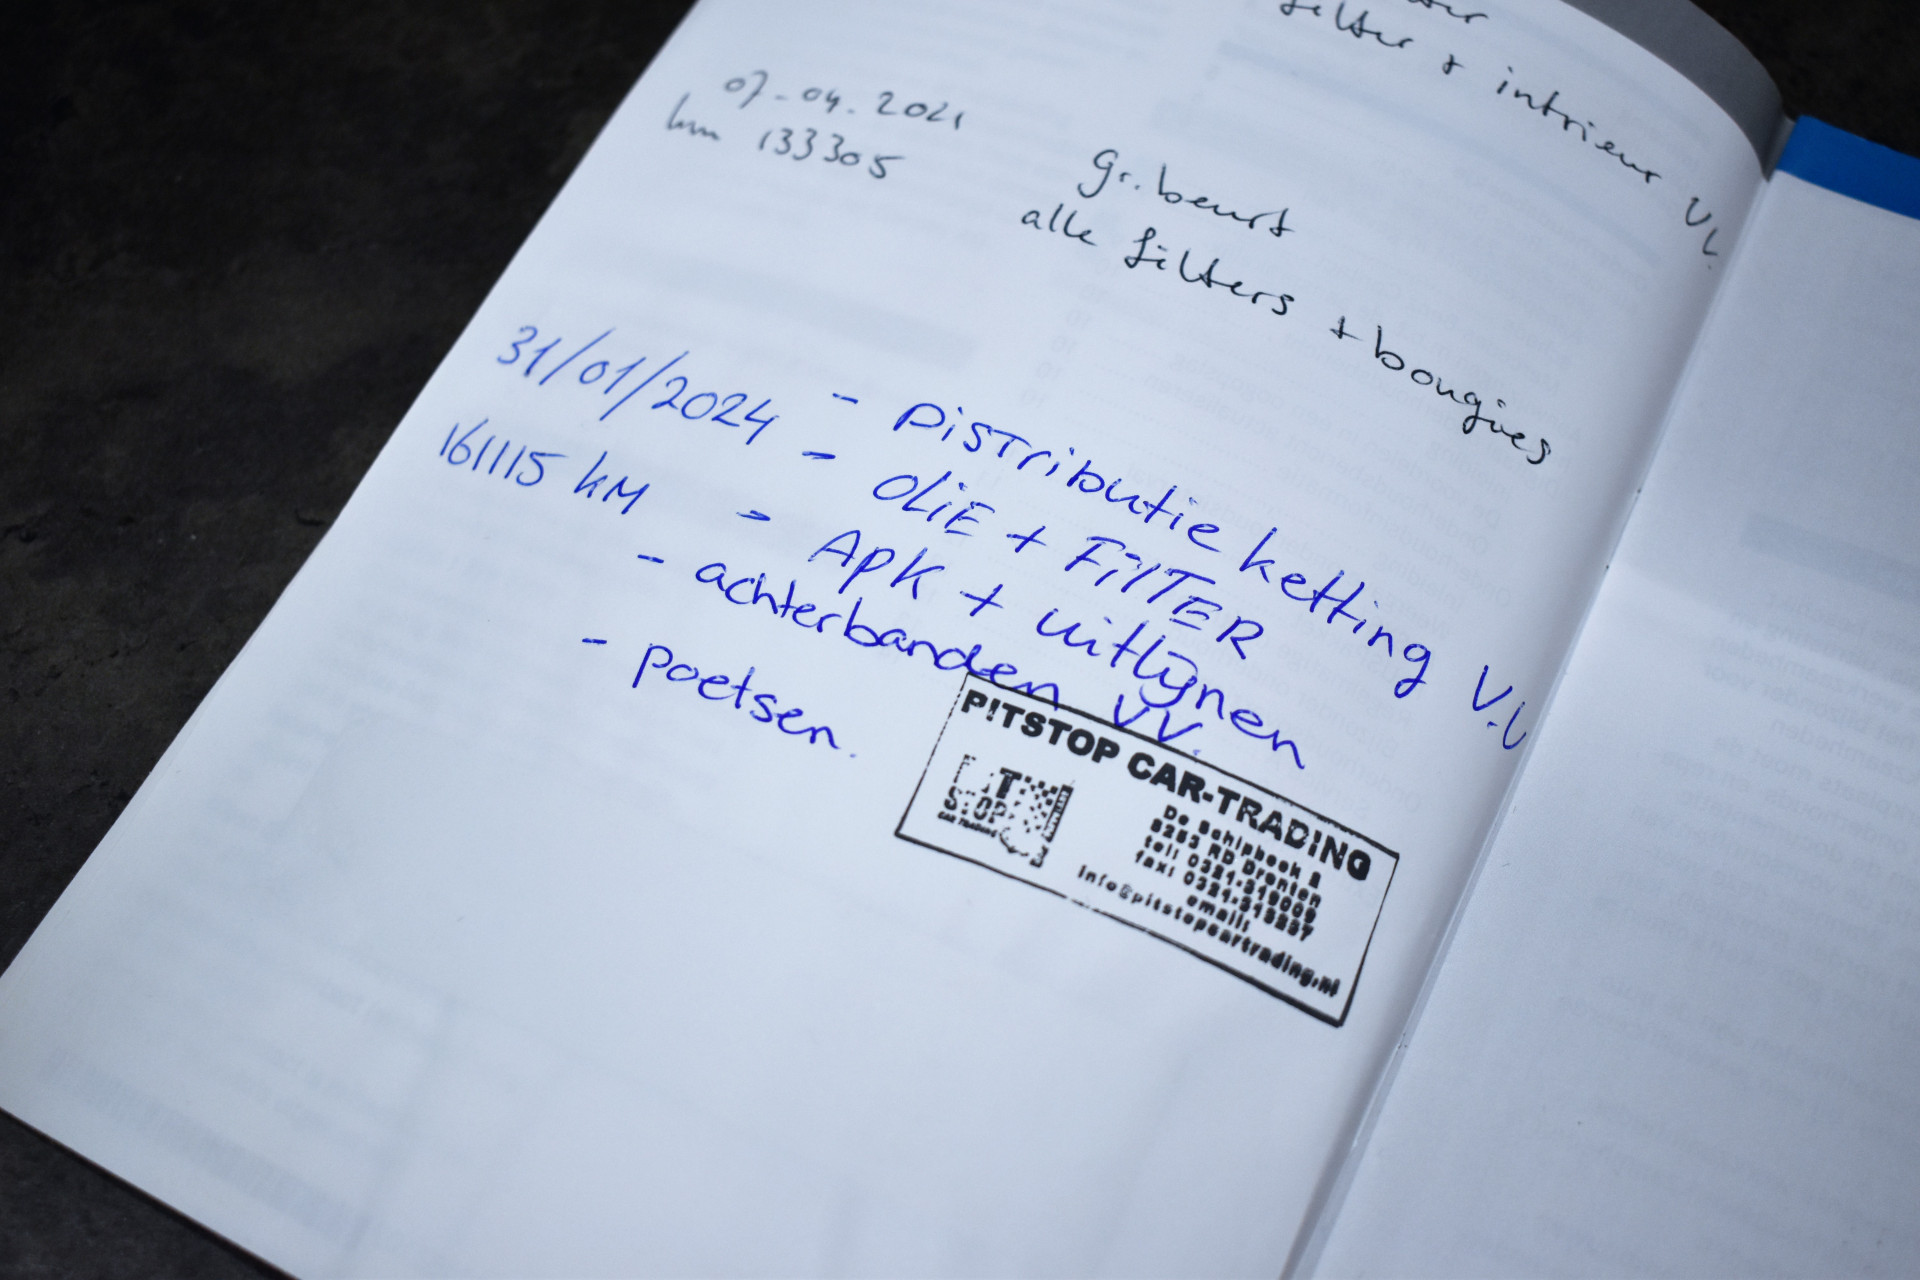 filter + intrieur V.V.
07-04-2021
km 133305
gr. beurt
alle filters + bougies
31/01/2024
161115 KM
- Distributie ketting V.V
- OLIE + FILTER
- APK + uitlijnen
- achterbanden V.V.
- poetsen.
PITSTOP CAR-TRADING
PIT
STOP
CAR TRADING
De Schipbeek 2
8253 RD Dronten
tel: 0321-319009
fax: 0321-318237
email:
info@pitstopcartrading.nl